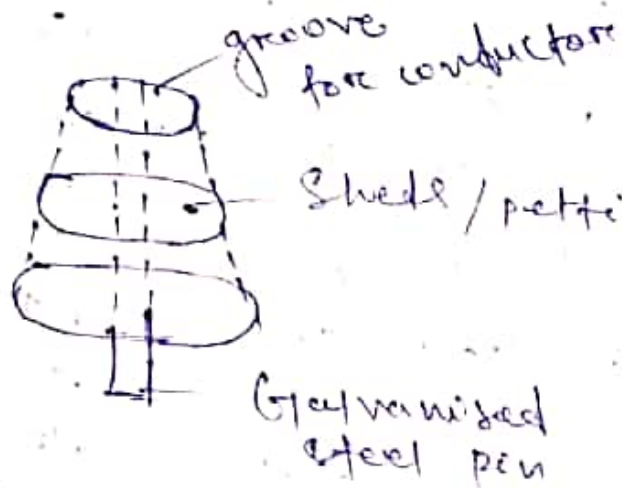 groove
for conductor
Sheds / petti
Galvanised
steel pin